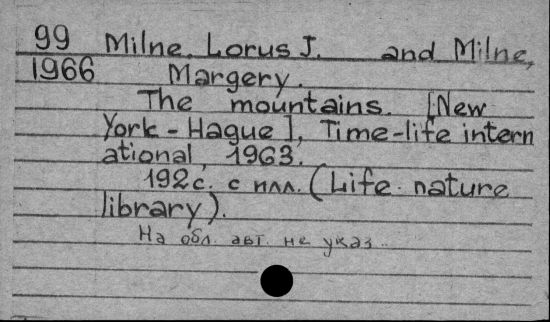 99 Milne, Lorus J. and Milne,
1966 Margery.
The mountains. [New
York-Hague], Time-life intern
ational, 1963.
192 с. с илл. (Life nature
library).
На обл. авт. не указ..